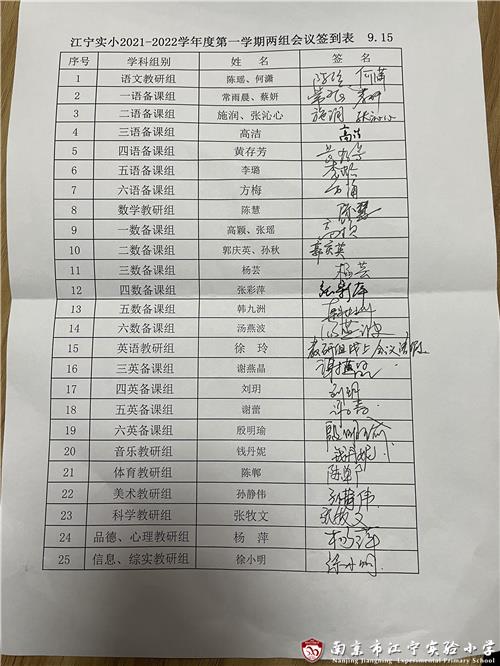 江宁实小2021-2022学年度第一学期两组会议签到表 9.15
序号 学科组别 姓 名 签 名
1 语文教研组 陈瑶、何潇 陈瑶 何潇
2 一语备课组 常雨晨、蔡妍
3 二语备课组 施润、张沁心 施润 张沁心
4 三语备课组 高洁 高洁
5 四语备课组 黄存芳 黄存芳
6 五语备课组 李璐 李璐
7 六语备课组 方梅 方梅
8 数学教研组 陈慧 陈慧
9 一数备课组 高颖、张瑶 高颖
10 二数备课组 郭庆英、孙秋 郭庆英
11 三数备课组 杨芸 杨芸
12 四数备课组 张彩萍 张彩萍
13 五数备课组 韩九洲 韩九洲
14 六数备课组 汤燕波 汤燕波
15 英语教研组 徐 玲 教研组线上会议请假
16 三英备课组 谢燕晶
17 四英备课组 刘玥 刘玥
18 五英备课组 谢蕾
19 六英备课组 殷明瑜 殷明瑜
20 音乐教研组 钱丹妮 钱丹妮
21 体育教研组 陈郸 陈郸
22 美术教研组 孙静伟 孙静伟
23 科学教研组 张牧文 张牧文
24 品德、心理教研组 杨 萍 杨萍
25 信息、综实教研组 徐小明 徐小明
南京市江宁实验小学
Nanjing Jiangning Experimental Primary School